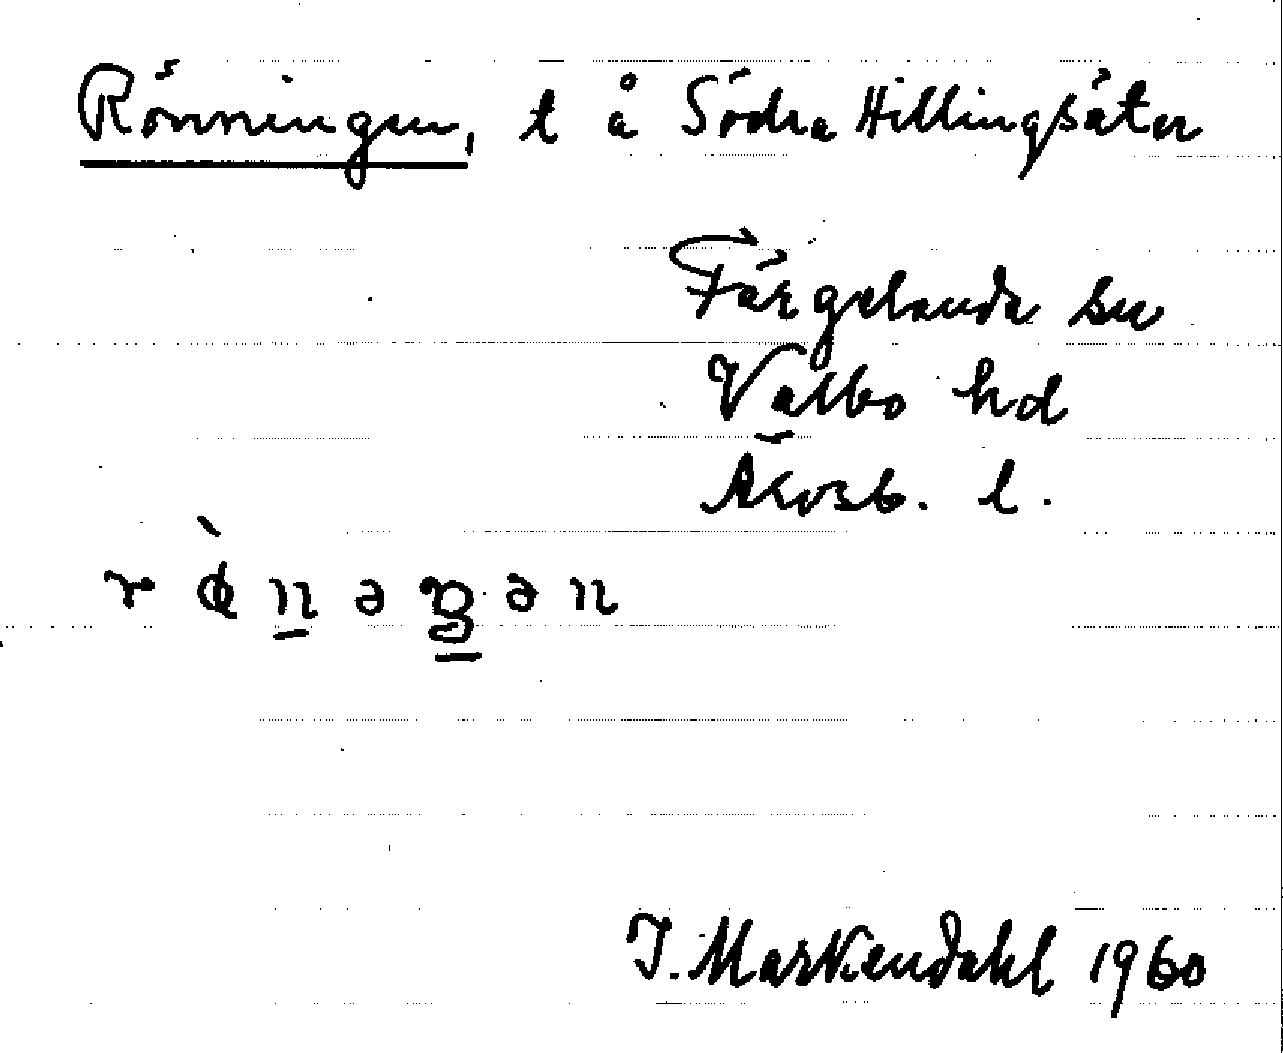 Rönningen, t å Södra Hillingsäter
Färgelanda sn
Valbo hd
Älvsb. l.
I. Markendahl 1960